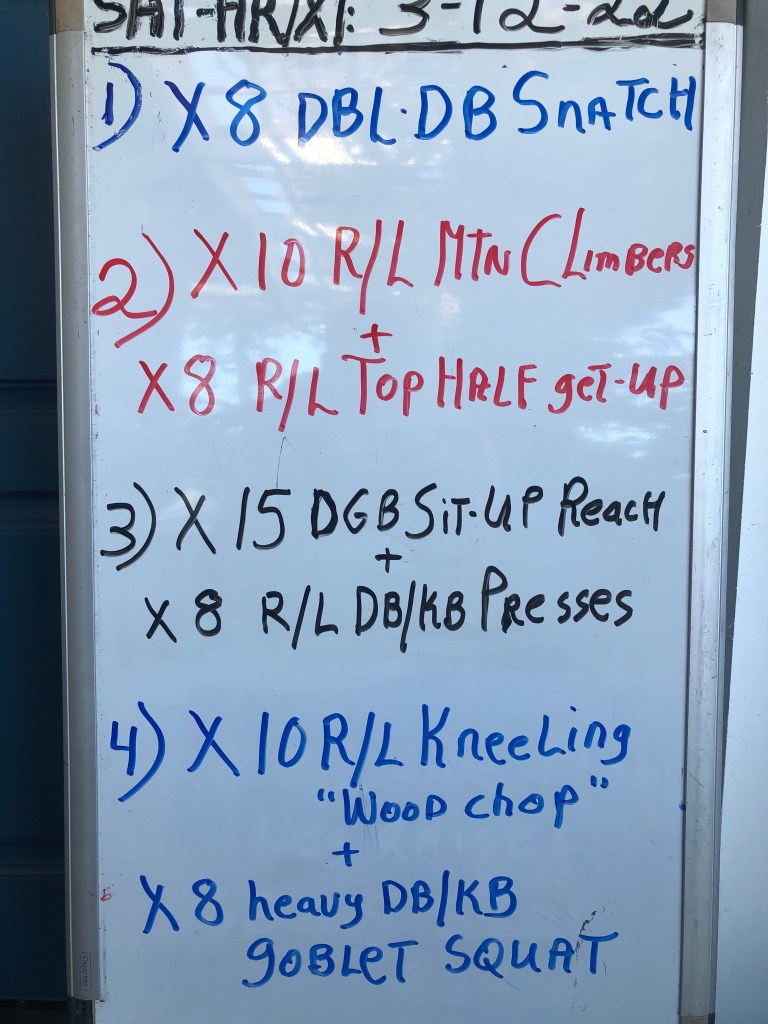 SAT-HR/XT: 3-12-22
1) X 8 DBL.DB SnATCH
2) X 10 R/L MTN CLimBeRS
+
X 8 R/L Top HALF geT-up
3) X 15 DGB SiT-UP ReacH
+
X 8 R/L DB/KB PResses
4) X 10 R/L KneeLing
"WooD chop"
+
X 8 heavy DB/KB
goBLeT SQUAT